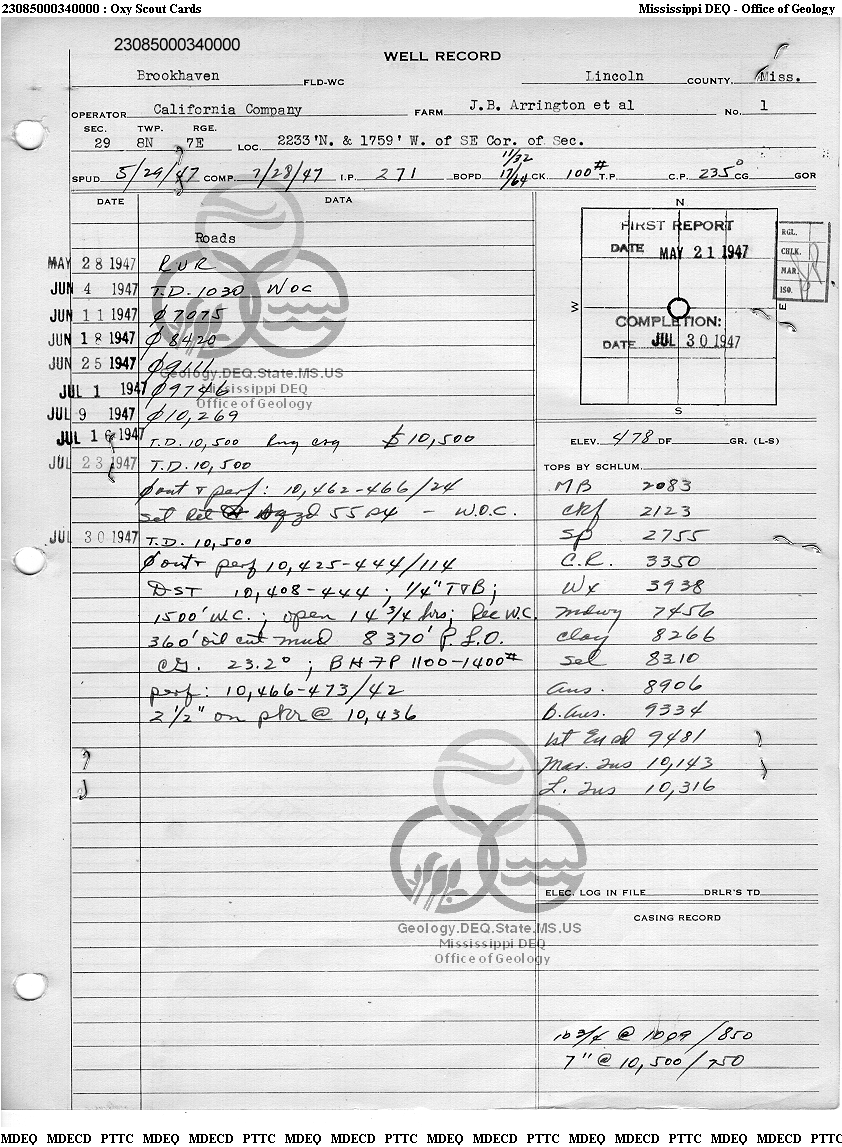 23085000340000 : Oxy Scout Cards Mississippi DEQ - Office of Geology
23085000340000
WELL RECORD
Brookhaven FLD-WC Lincoln COUNTY, Miss.
OPERATOR California Company FARM J.B. Arrington et al No. 1
SEC. TWP. RGE.
29 8N 7E LOC. 2233'N. & 1759' W. of SE Cor. of Sec.
11/32
SPUD 5/29/47 COMP. 7/28/47 I.P. 271 BOPD 17/64 CK. 100# T.P. C.P. 235° CG GOR
DATE DATA
Roads
MAY 28 1947 RUR
JUN 4 1947 T.D. 1030 WOC
JUN 11 1947 Ø 7075
JUN 18 1947 Ø 8420
JUN 25 1947 Ø 9666
JUL 1 1947 Ø 9746
JUL 9 1947 Ø 10,269
JUL 16 1947 T.D. 10,500 Rng csg $ 10,500
JUL 23 1947 T.D. 10,500
Ø out & perf: 10,462-466/24
set ret sqzd 55 sx - W.O.C.
JUL 30 1947 T.D. 10,500
Ø out & perf 10,425-444/114
DST 10,408-444 ; 1/4" T&B ;
1500' W.C. ; open 14 3/4 hrs; Rec W.C.
360' oil cut mud 8370' P.L.O.
CG. 23.2° ; BHFP 1100-1400#
perf: 10,466-473/42
2 1/2" on pkr @ 10,436
N
FIRST REPORT
DATE MAY 21 1947
W E
COMPLETION:
DATE JUL 30 1947
S
RGL.
CHLK.
MAR.
ISO.
ELEV. 478 DF GR. (L-S)
TOPS BY SCHLUM.
MB 2083
ckf 2123
Sp 2755
C.R. 3350
Wx 3938
mdwy 7456
clay 8266
sel 8310
Aus. 8906
B. Aus. 9334
1st Eu sd 9481
Mar. Tus 10,143
L. Tus 10,316
ELEC. LOG IN FILE DRLR'S TD
CASING RECORD
10 3/4 @ 1009/850
7" @ 10,500/750
Geology.DEQ.State.MS.US
Mississippi DEQ
Office of Geology
Geology.DEQ.State.MS.US
Mississippi DEQ
Office of Geology
MDEQ MDECD PTTC MDEQ MDECD PTTC MDEQ MDECD PTTC MDEQ MDECD PTTC MDEQ MDECD PTTC MDEQ MDECD PTTC